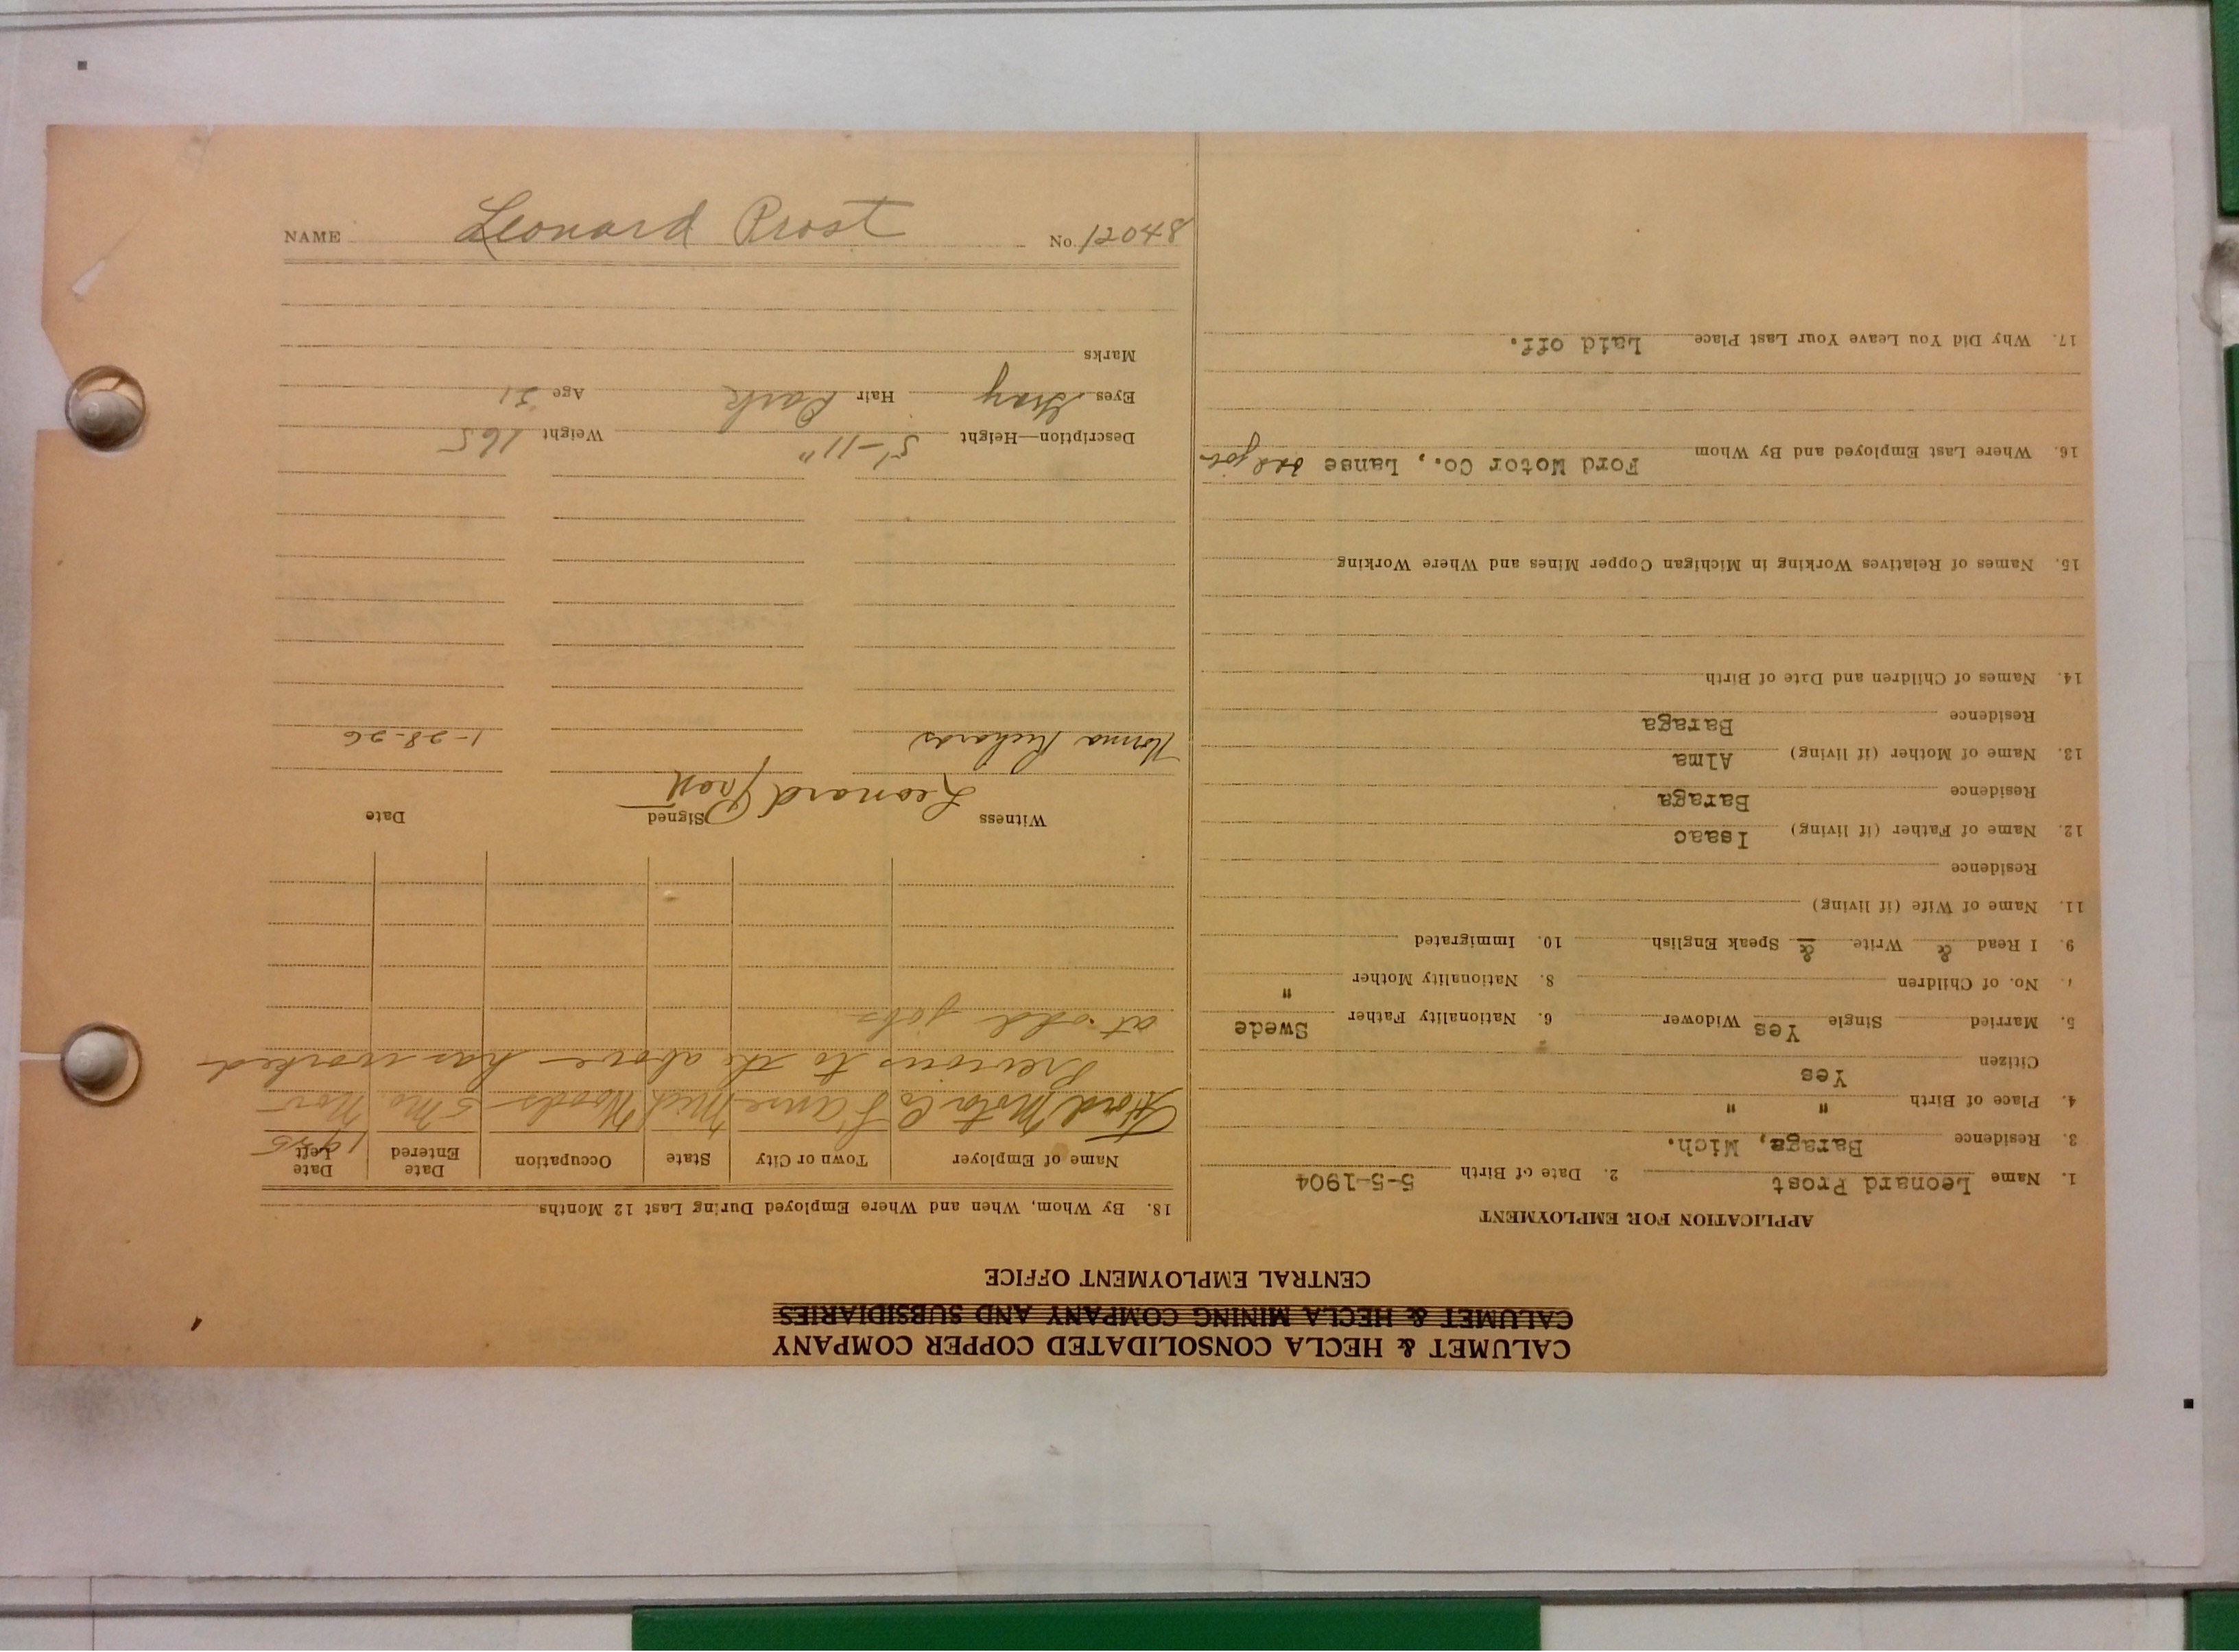 CALUMET & HECLA CONSOLIDATED COPPER COMPANY
CALUMET & HECLA MINING COMPANY AND SUBSIDIARIES
CENTRAL EMPLOYMENT OFFICE
APPLICATION FOR EMPLOYMENT
1. Name Leonard Prost 2. Date of Birth 5-5-1904
3. Residence Baraga, Mich.
4. Place of Birth " "
Citizen Yes
5. Married Single Yes Widower 6. Nationality Father Swede
7. No. of Children 8. Nationality Mother "
9. I Read & Write & Speak English 10. Immigrated
11. Name of Wife (if living)
Residence
12. Name of Father (if living) Isaac
Residence Baraga
13. Name of Mother (if living) Alma
Residence Baraga
14. Names of Children and Date of Birth
15. Names of Relatives Working in Michigan Copper Mines and Where Working
16. Where Last Employed and By Whom Ford Motor Co., Lanse odd job
17. Why Did You Leave Your Last Place Laid off.
18. By Whom, When and Where Employed During Last 12 Months
Name of Employer Town or City State Occupation Date Entered Date Left
1925
Ford Motor Co L'anse Mich Woods 5 Mo Nov
Previous to the above has worked
at odd jobs
Witness Signed Date
Leonard Prost
Norma Richards 1-28-26
Description—Height 5'-11" Weight 165
Eyes Gray Hair Dark Age 21
Marks
NAME Leonard Prost No. 12048